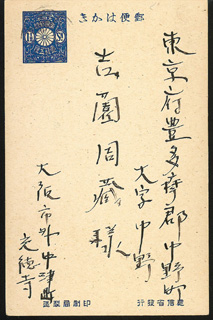 郵便はがき
東京府豊多摩郡中野町
大字中野
吉園周蔵様
大阪市外中津町
光徳寺
逓信省発行
印刷局製造